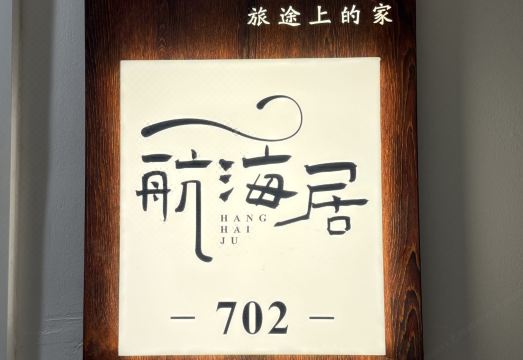 旅途上的家
航海居
HANG
HAI
JU
– 702 –